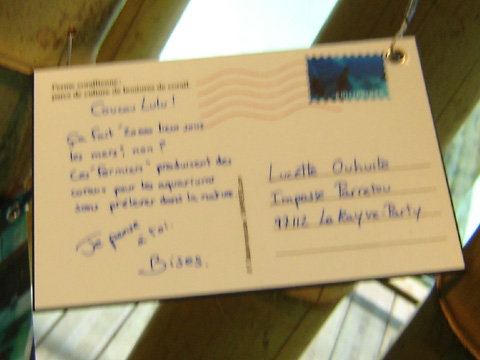 Ferme corallienne :
parc de culture de boutures de corail
Coucou Lulu !
Ça fait "20000 lieues sous
les mers", non ?
Ces "fermiers" produisent des
coraux pour les aquariums
sans prélever dans la nature.
Je pense
à toi.
Bises.
Lucette Ouhuite
Impasse Parretou
97112 La Kayve-Party